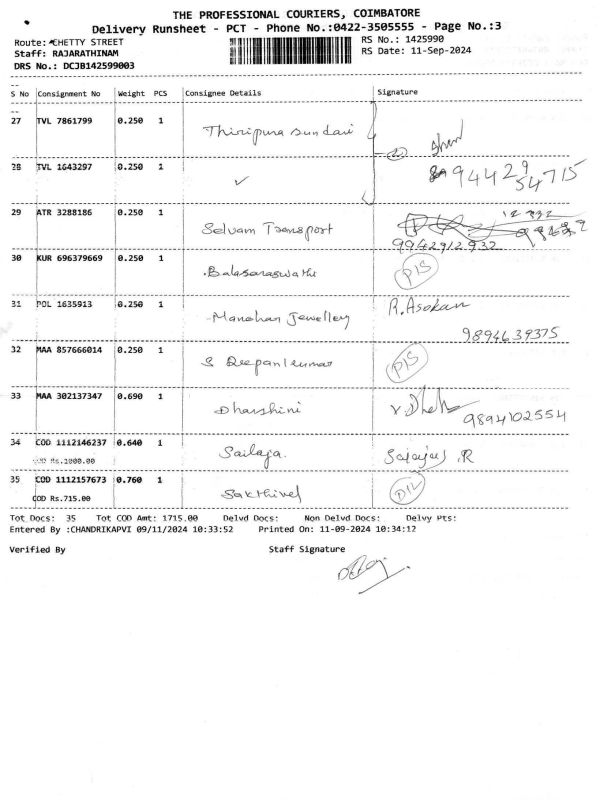 THE PROFESSIONAL COURIERS, COIMBATORE
Delivery Runsheet - PCT - Phone No.:0422-3505555 - Page No.:3
Route: CHETTY STREET
RS No.: 1425990
Staff: RAJARATHINAM
RS Date: 11-Sep-2024
DRS No.: DCJB142599003
S No Consignment No Weight PCS Consignee Details Signature
27 TVL 7861799 0.250 1 Thiripura sundari
28 TVL 1643297 0.250 1 ✓ 94429 54715
29 ATR 3288186 0.250 1 Selvam Transport
9942912932
30 KUR 696379669 0.250 1 Balasaraswathi P/S
31 POL 1635913 0.250 1 Manohar Jewellery R. Asokan
9894639375
32 MAA 857666014 0.250 1 S Deepan kumar P/S
33 MAA 302137347 0.690 1 Dharshini 9894102554
34 COD 1112146237 0.640 1 Sailaja. R
COD Rs.1000.00
35 COD 1112157673 0.760 1 Sakthivel D/L
COD Rs.715.00
Tot Docs: 35 Tot COD Amt: 1715.00 Delvd Docs: Non Delvd Docs: Delvy Pts:
Entered By :CHANDRIKAPVI 09/11/2024 10:33:52 Printed On: 11-09-2024 10:34:12
Verified By Staff Signature